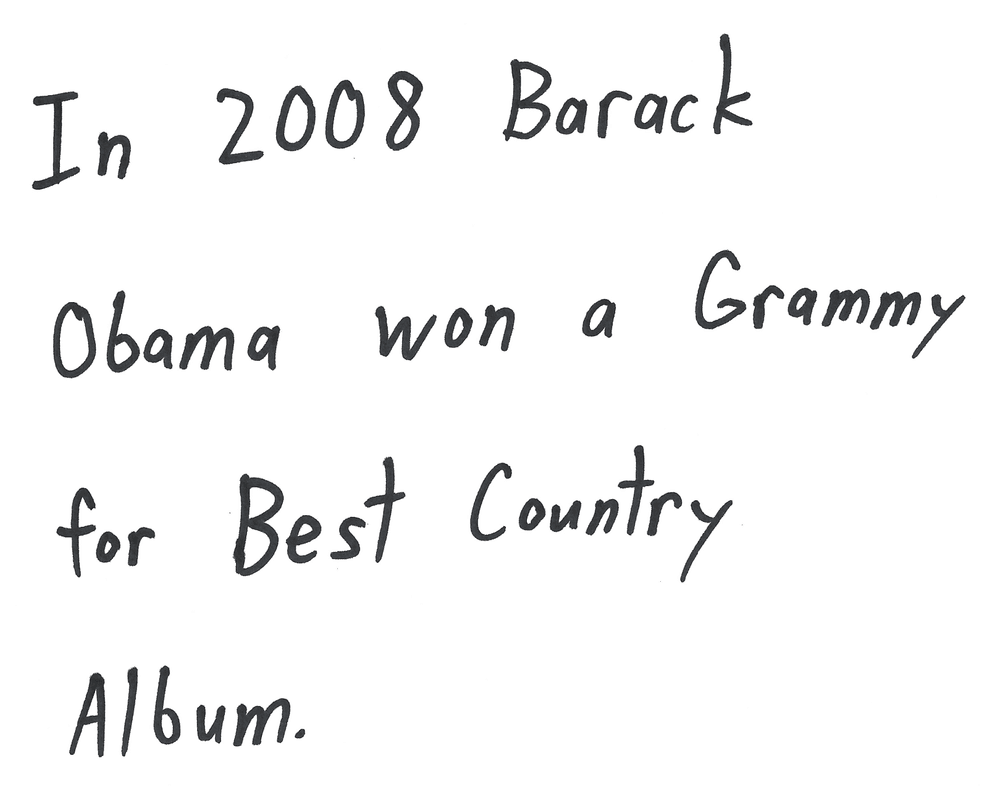 In 2008 Barack
Obama won a Grammy
for Best Country
Album.